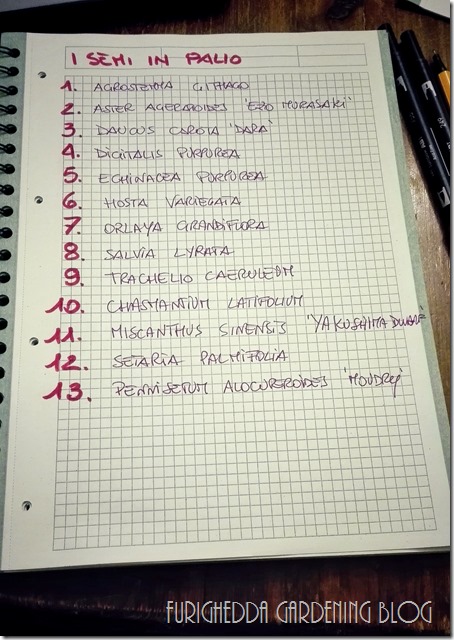 I SEMI IN PALIO
1. AGROSTEMMA GITHAGO
2. ASTER AGERATOIDES 'EZO MURASAKI'
3. DAUCUS CAROTA 'DARA'
4. DIGITALIS PURPUREA
5. ECHINACEA PURPUREA
6. HOSTA VARIEGATA
7. ORLAYA GRANDIFLORA
8. SALVIA LYRATA
9. TRACHELIO CAERULEUM
10. CHASMANTIUM LATIFOLIUM
11. MISCANTHUS SINENSIS 'YAKUSHIMA DWARF'
12. SETARIA PALMIFOLIA
13. PENNISETUM ALOCUPEROIDES 'MOUDRY'
FURIGHEDDA GARDENING BLOG